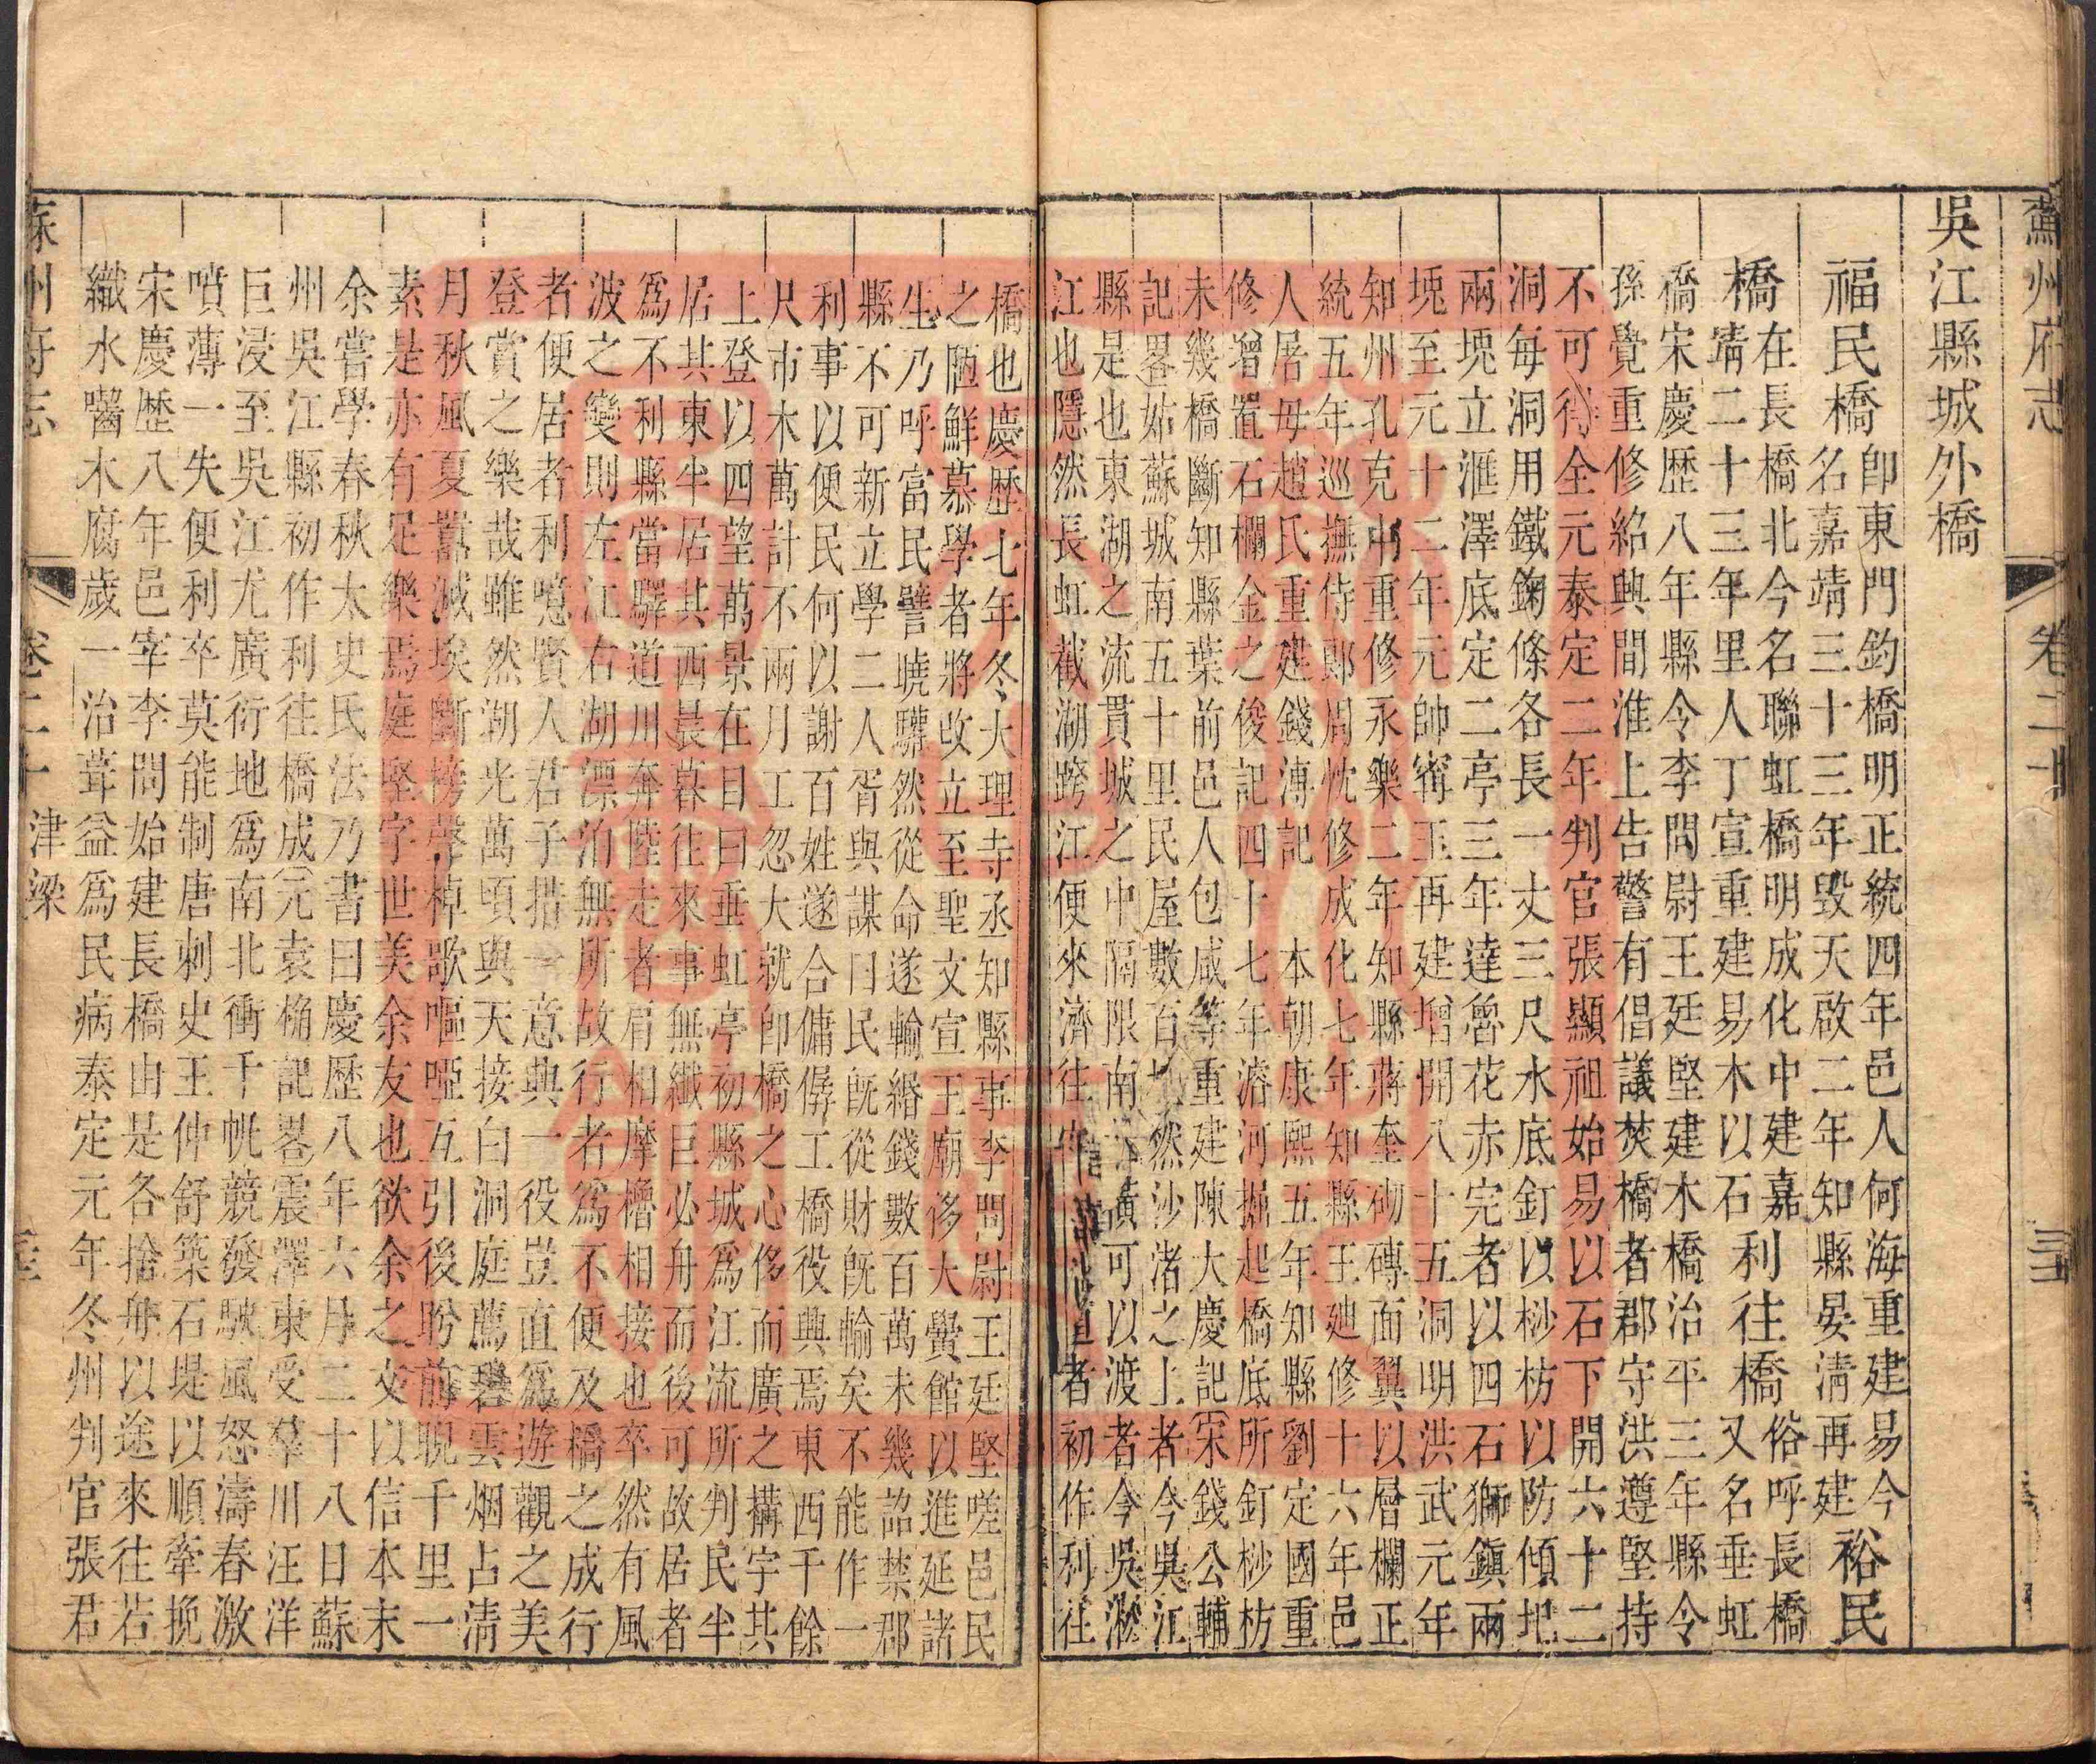 蘇州府志 卷二十
吳江縣城外橋
福民橋 卽東門鈞橋明正統四年邑人何海重建易今
名嘉靖三十三年毀天啟二年知縣晏清再建 裕民
橋 在長橋北今名聯虹橋明成化中建嘉
靖二十三年里人丁宣重建易木以石 利往橋 俗呼長橋
又名垂虹
橋宋慶歷八年縣令李問尉王廷堅建木橋治平三年縣令
孫覺重修紹興間淮上告警有倡議焚橋者郡守洪遵堅持
不可得全元泰定二年判官張顯祖始易以石下開六十二
洞每洞用鐵鋦條各長一丈三尺水底釘以杪枋以防傾圯
兩堍立滙澤底定二亭三年達魯花赤完者以四石獅鎮兩
堍至元十二年元帥甯玉再建增開八十五洞明洪武元年
知州孔克中重修永樂二年知縣蔣奎砌磚面翼以層欄正
統五年巡撫侍郎周忱修成化七年知縣王廸修十六年邑
人屠母趙氏重建錢溥記 本朝康熙五年知縣劉定國重
修增置石欄金之俊記四十七年濬河掘起橋底所釘杪枋
未幾橋斷知縣葉前邑人包咸等重建陳大慶記宋錢公輔
記畧姑蘇城南五十里民屋數百 然沙渚之上者今吳江
縣是也東湖之流貫城之中隔限南 可以渡者今吳淞
江也隱然長虹截湖跨江便來濟往 道者初作利往
橋也慶歷七年冬大理寺丞知縣事李問尉王廷堅嗟邑民
之陋鮮慕學者將收立至聖文宣王廟侈大黌館以進延諸
生乃呼富民譬曉驩然從命遂輸緡錢數百萬未幾詔禁郡
縣不可新立學二人胥與謀曰民旣從財旣輸矣不能作一
利事以便民何以謝百姓遂合傭僝工橋役興焉東西千餘
尺市木萬計不兩月工忽大就卽橋之心侈而廣之搆宇其
上登以四望萬景在目曰垂虹亭初縣城爲江流所判民半
居其東半居其西晨暮往來事無纖巨必舟而後可故居者
爲不利縣當驛道川奔陸走者肩相摩櫓相接也卒然有風
波之變則左江右湖漂泊無所故行者爲不便及橋之成行
者便居者利噫賢人君子措一意典一役豈直爲遊觀之美
登賞之樂哉雖然湖光萬頃與天接白洞庭薦碧雲烟占清
月秋風夏囂滅埃斷榜聲棹歌嘔啞互引後盻前睨千里一
素是亦有足樂焉庭堅字世美余友也欲余之文以信本末
余嘗學春秋太史氏法乃書曰慶歷八年六月二十八日蘇
州吳江縣初作利往橋成元袁桷記畧震澤東受羣川汪洋
巨浸至吳江尤廣衍地爲南北衝千帆競發駛風怒濤春激
噴薄一失便利卒莫能制唐刺史王仲舒築石堤以順牽挽
宋慶歷八年邑宰李問始建長橋由是各捨舟以途來往若
織水齧木腐歲一治葺益爲民病泰定元年冬州判官張君
蘇州府志 卷二十 津梁